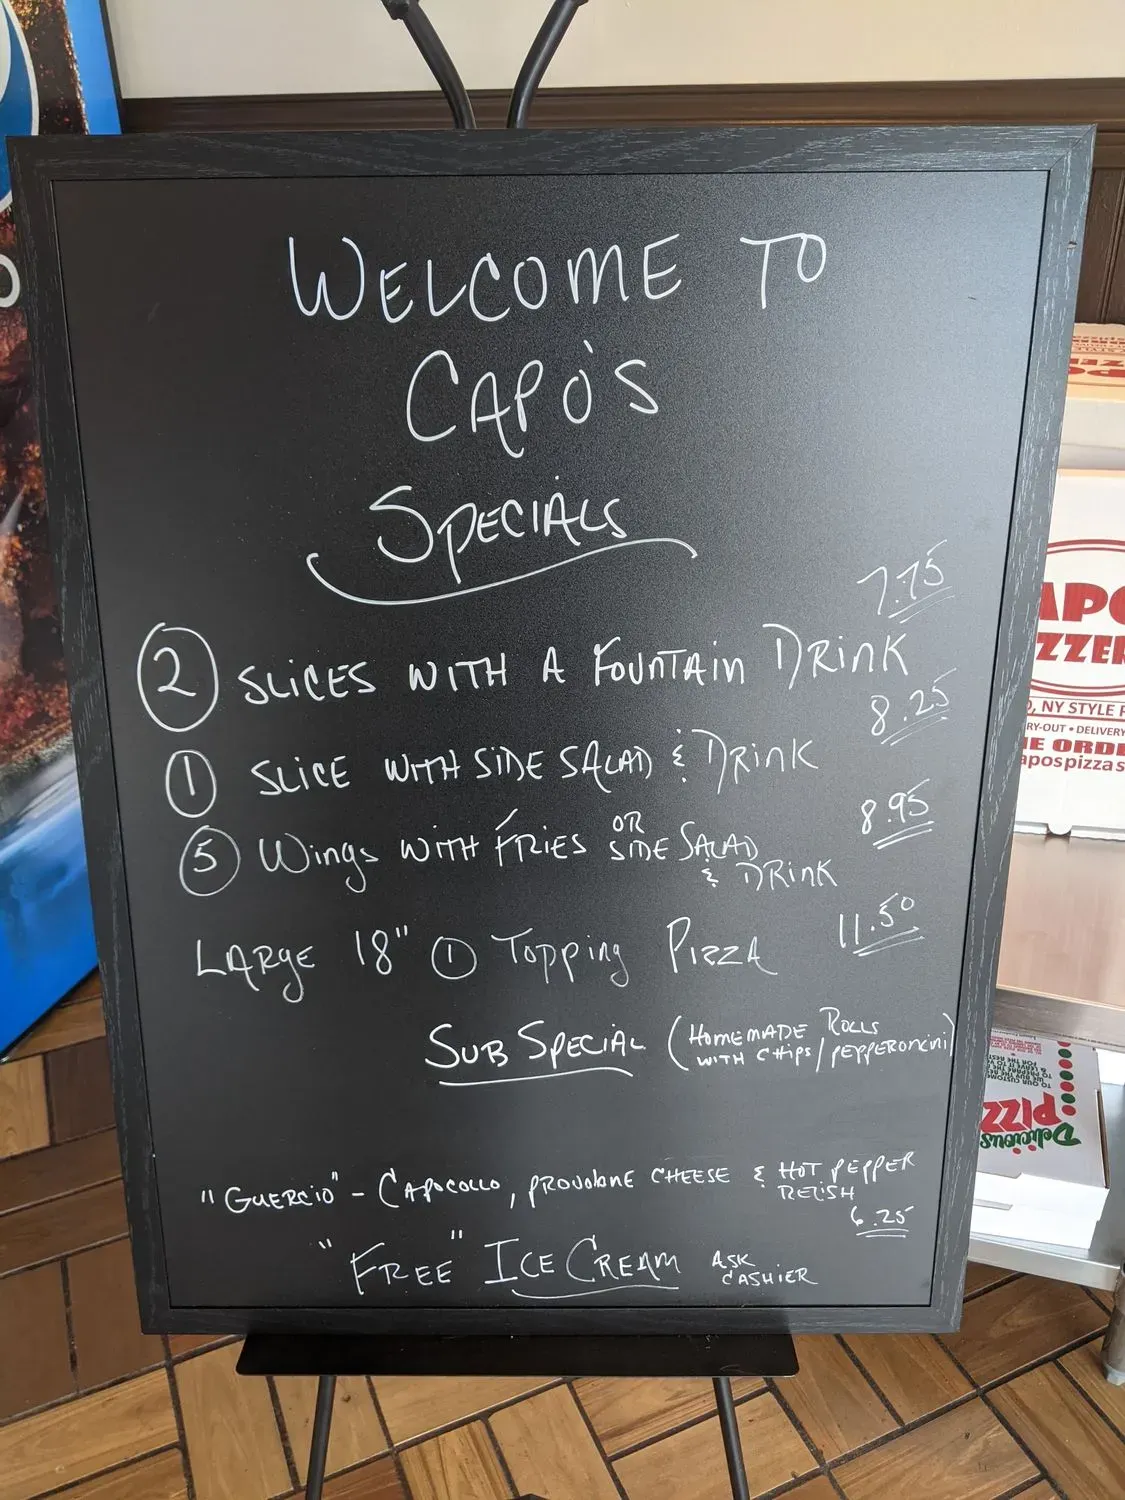 WELCOME TO
CAPO'S
SPECIALS
7.75
2 SLICES WITH A FOUNTAIN DRINK
8.25
1 SLICE WITH SIDE SALAD & DRINK
8.95
5 WINGS WITH FRIES OR SIDE SALAD
& DRINK
11.50
LARGE 18" 1 TOPPING PIZZA
SUB SPECIAL (HOMEMADE ROLLS
WITH CHIPS/PEPPERONCINI)
"GUERCIO" - CAPOCOLLO, PROVOLONE CHEESE & HOT PEPPER
RELISH
6.25
"FREE" ICE CREAM ASK
CASHIER
NY STYLE
DELIVERY
Delicious
PIZZ